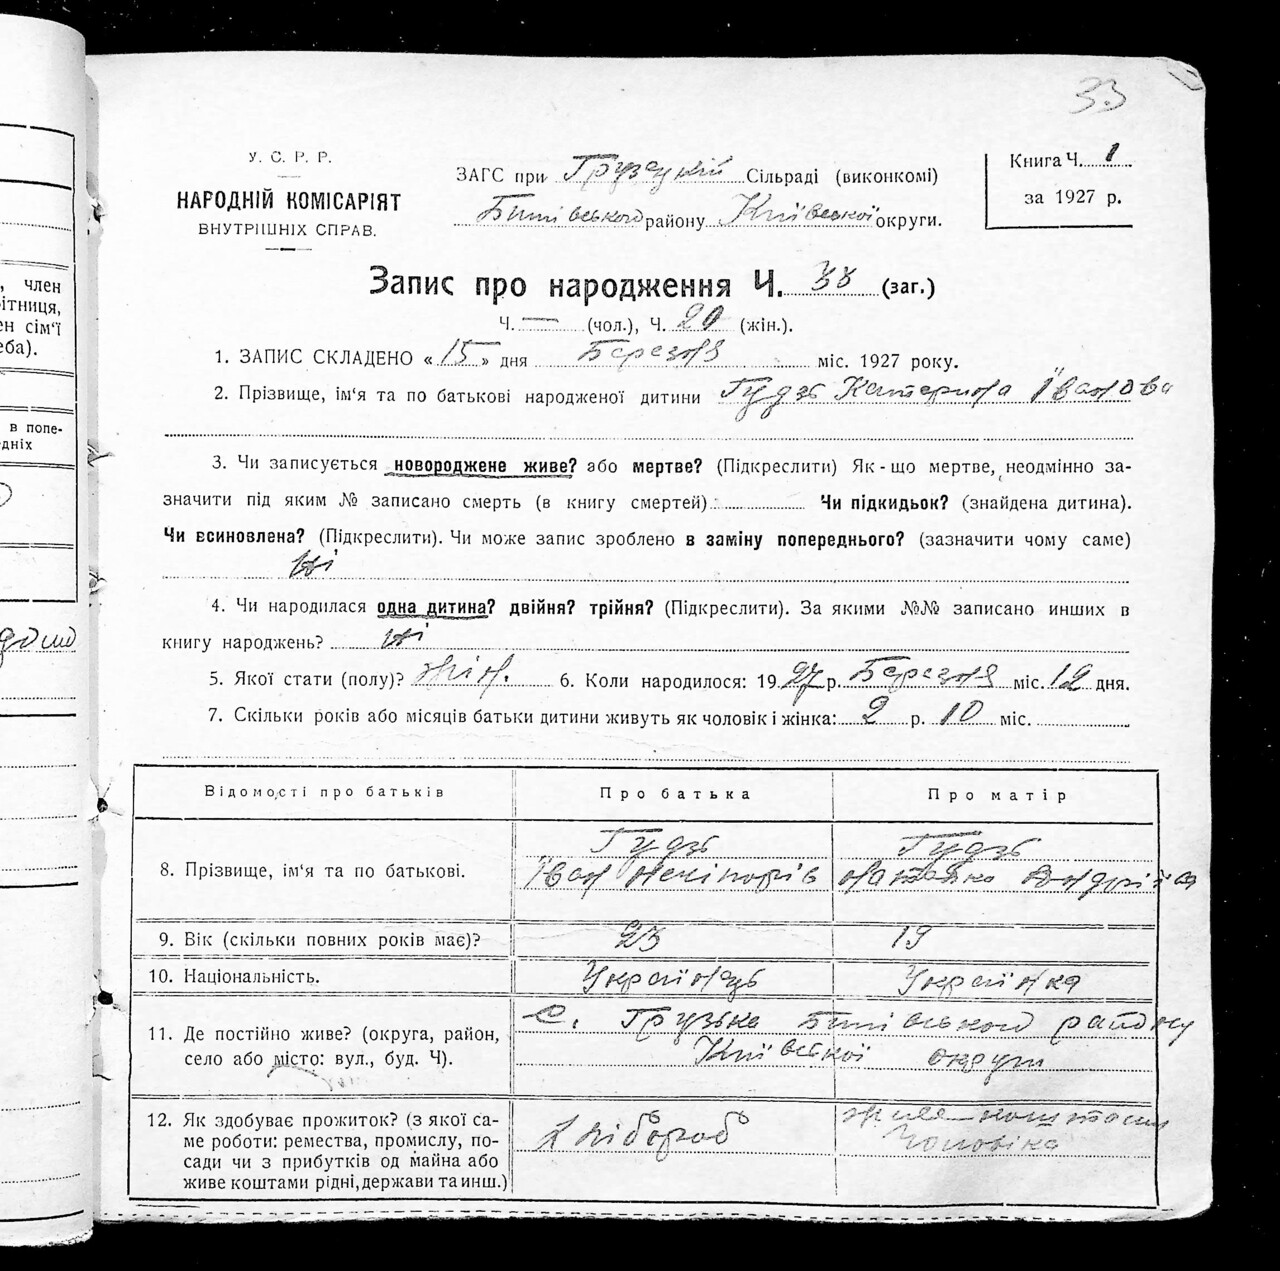 33
У. С. Р. Р.
НАРОДНІЙ КОМІСАРІЯТ
ВНУТРІШНІХ СПРАВ.
ЗАГС при Грузецкій Сільраді (виконкомі)
Бишівського району Київської округи.
Книга Ч. 1
за 1927 р.
Запис про народження Ч. 38 (заг.)
Ч. — (чол.), Ч. 20 (жін.).
1. ЗАПИС СКЛАДЕНО «15» дня Березня міс. 1927 року.
2. Прізвище, ім‘я та по батькові народженої дитини Гудзь Катерина Іванова
3. Чи записується новороджене живе? або мертве? (Підкреслити) Як-що мертве, неодмінно за-
значити під яким № записано смерть (в книгу смертей) Чи підкидьок? (знайдена дитина).
Чи всиновлена? (Підкреслити). Чи може запис зроблено в заміну попереднього? (зазначити чому саме)
Ні
4. Чи народилася одна дитина? двійня? трійня? (Підкреслити). За якими №№ записано инших в
книгу народжень? ні
5. Якої стати (полу)? жін. 6. Коли народилося: 1927 р. Березня міс. 12 дня.
7. Скільки років або місяців батьки дитини живуть як чоловік і жінка: 2 р. 10 міс.
Відомості про батьків Про батька Про матір
8. Прізвище, ім‘я та по батькові.
Гудзь Гудзь
Іван Нечіпорів Наталка Андрієва
9. Вік (скільки повних років має)? 23 19
10. Національність. Українець Українка
11. Де постійно живе? (округа, район,
село або місто: вул., буд. Ч).
с. Грузька Бишівського району
Київської округи
12. Як здобуває прожиток? (з якої са-
ме роботи: ремества, промислу, по-
сади чи з прибутків од майна або
живе коштами рідні, держави та инш.)
Хлібороб живе коштами
Чоловіка
, член
ітниця,
ен сім‘ї
еба).
в попе-
дніх